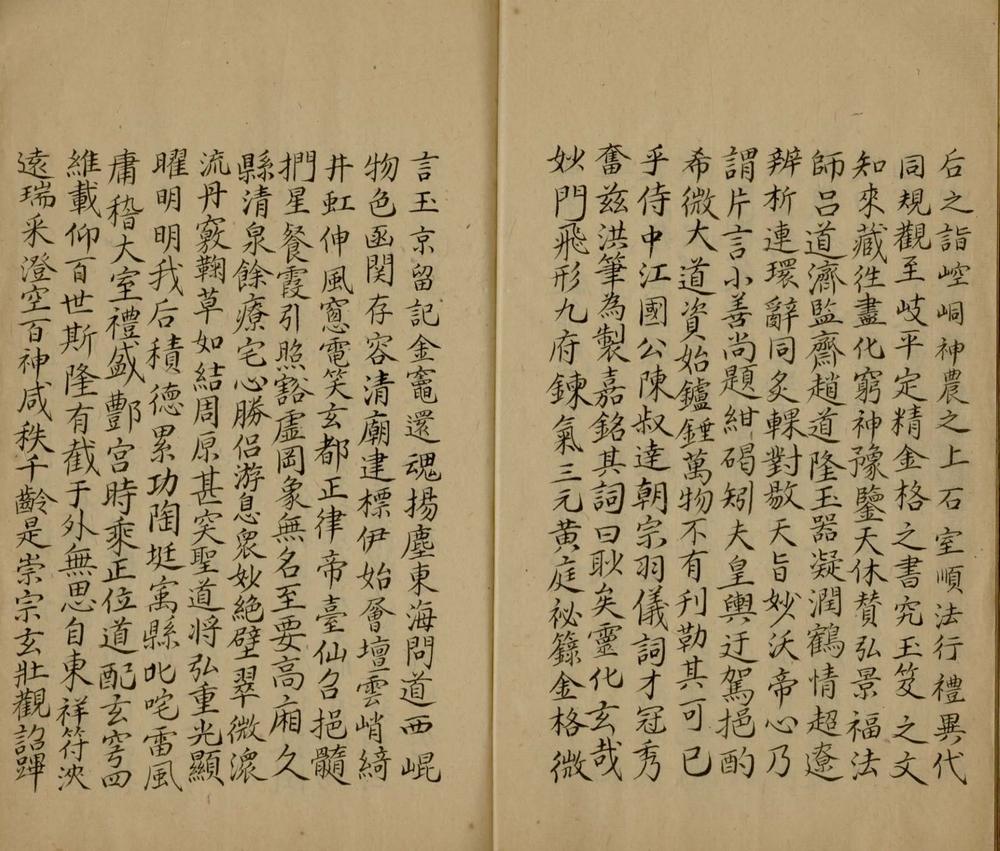 后之詣崆峒神農之上石室順法行禮異代
同規觀至岐平定精金格之書究玉笈之文
知來藏往盡化窮神豫鑒天休賛弘景福法
師呂道濟監齋趙道隆玉器凝潤鶴情超遼
辨析連環辭同炙輠對敭天旨妙沃帝心乃
謂片言小善尚題紺碣矧夫皇輿迂駕挹酌
希微大道資始鑪錘萬物不有刋勒其可已
乎侍中江國公陳叔達朝宗羽儀詞才冠秀
奮兹洪筆為製嘉銘其詞曰耿矣靈化玄哉
妙門飛形九府鍊氣三元黃庭祕籙金格微
言玉京留記金竈還魂揚塵東海問道西崐
物色函関存容清廟建標伊始層壇雲峭綺
井虹伸風窓電笑玄都正律帝臺仙召挹髓
捫星餐霞引照豁虛罔象無名至要高廂久
縣清泉餘療宅心勝侶游息衆妙絶壁翠微澴
流丹竅鞠草如結周原甚突聖道将弘重光顯
曜明明我后積德累功陶埏寓縣叱咤雷風
庸稽大室禮盛酆宮時乘正位道配玄穹四
維載仰百世斯隆有截于外無思自東祥符泱
遠瑞采澄空百神咸秩千齡是崇宗玄壯觀詔蹕